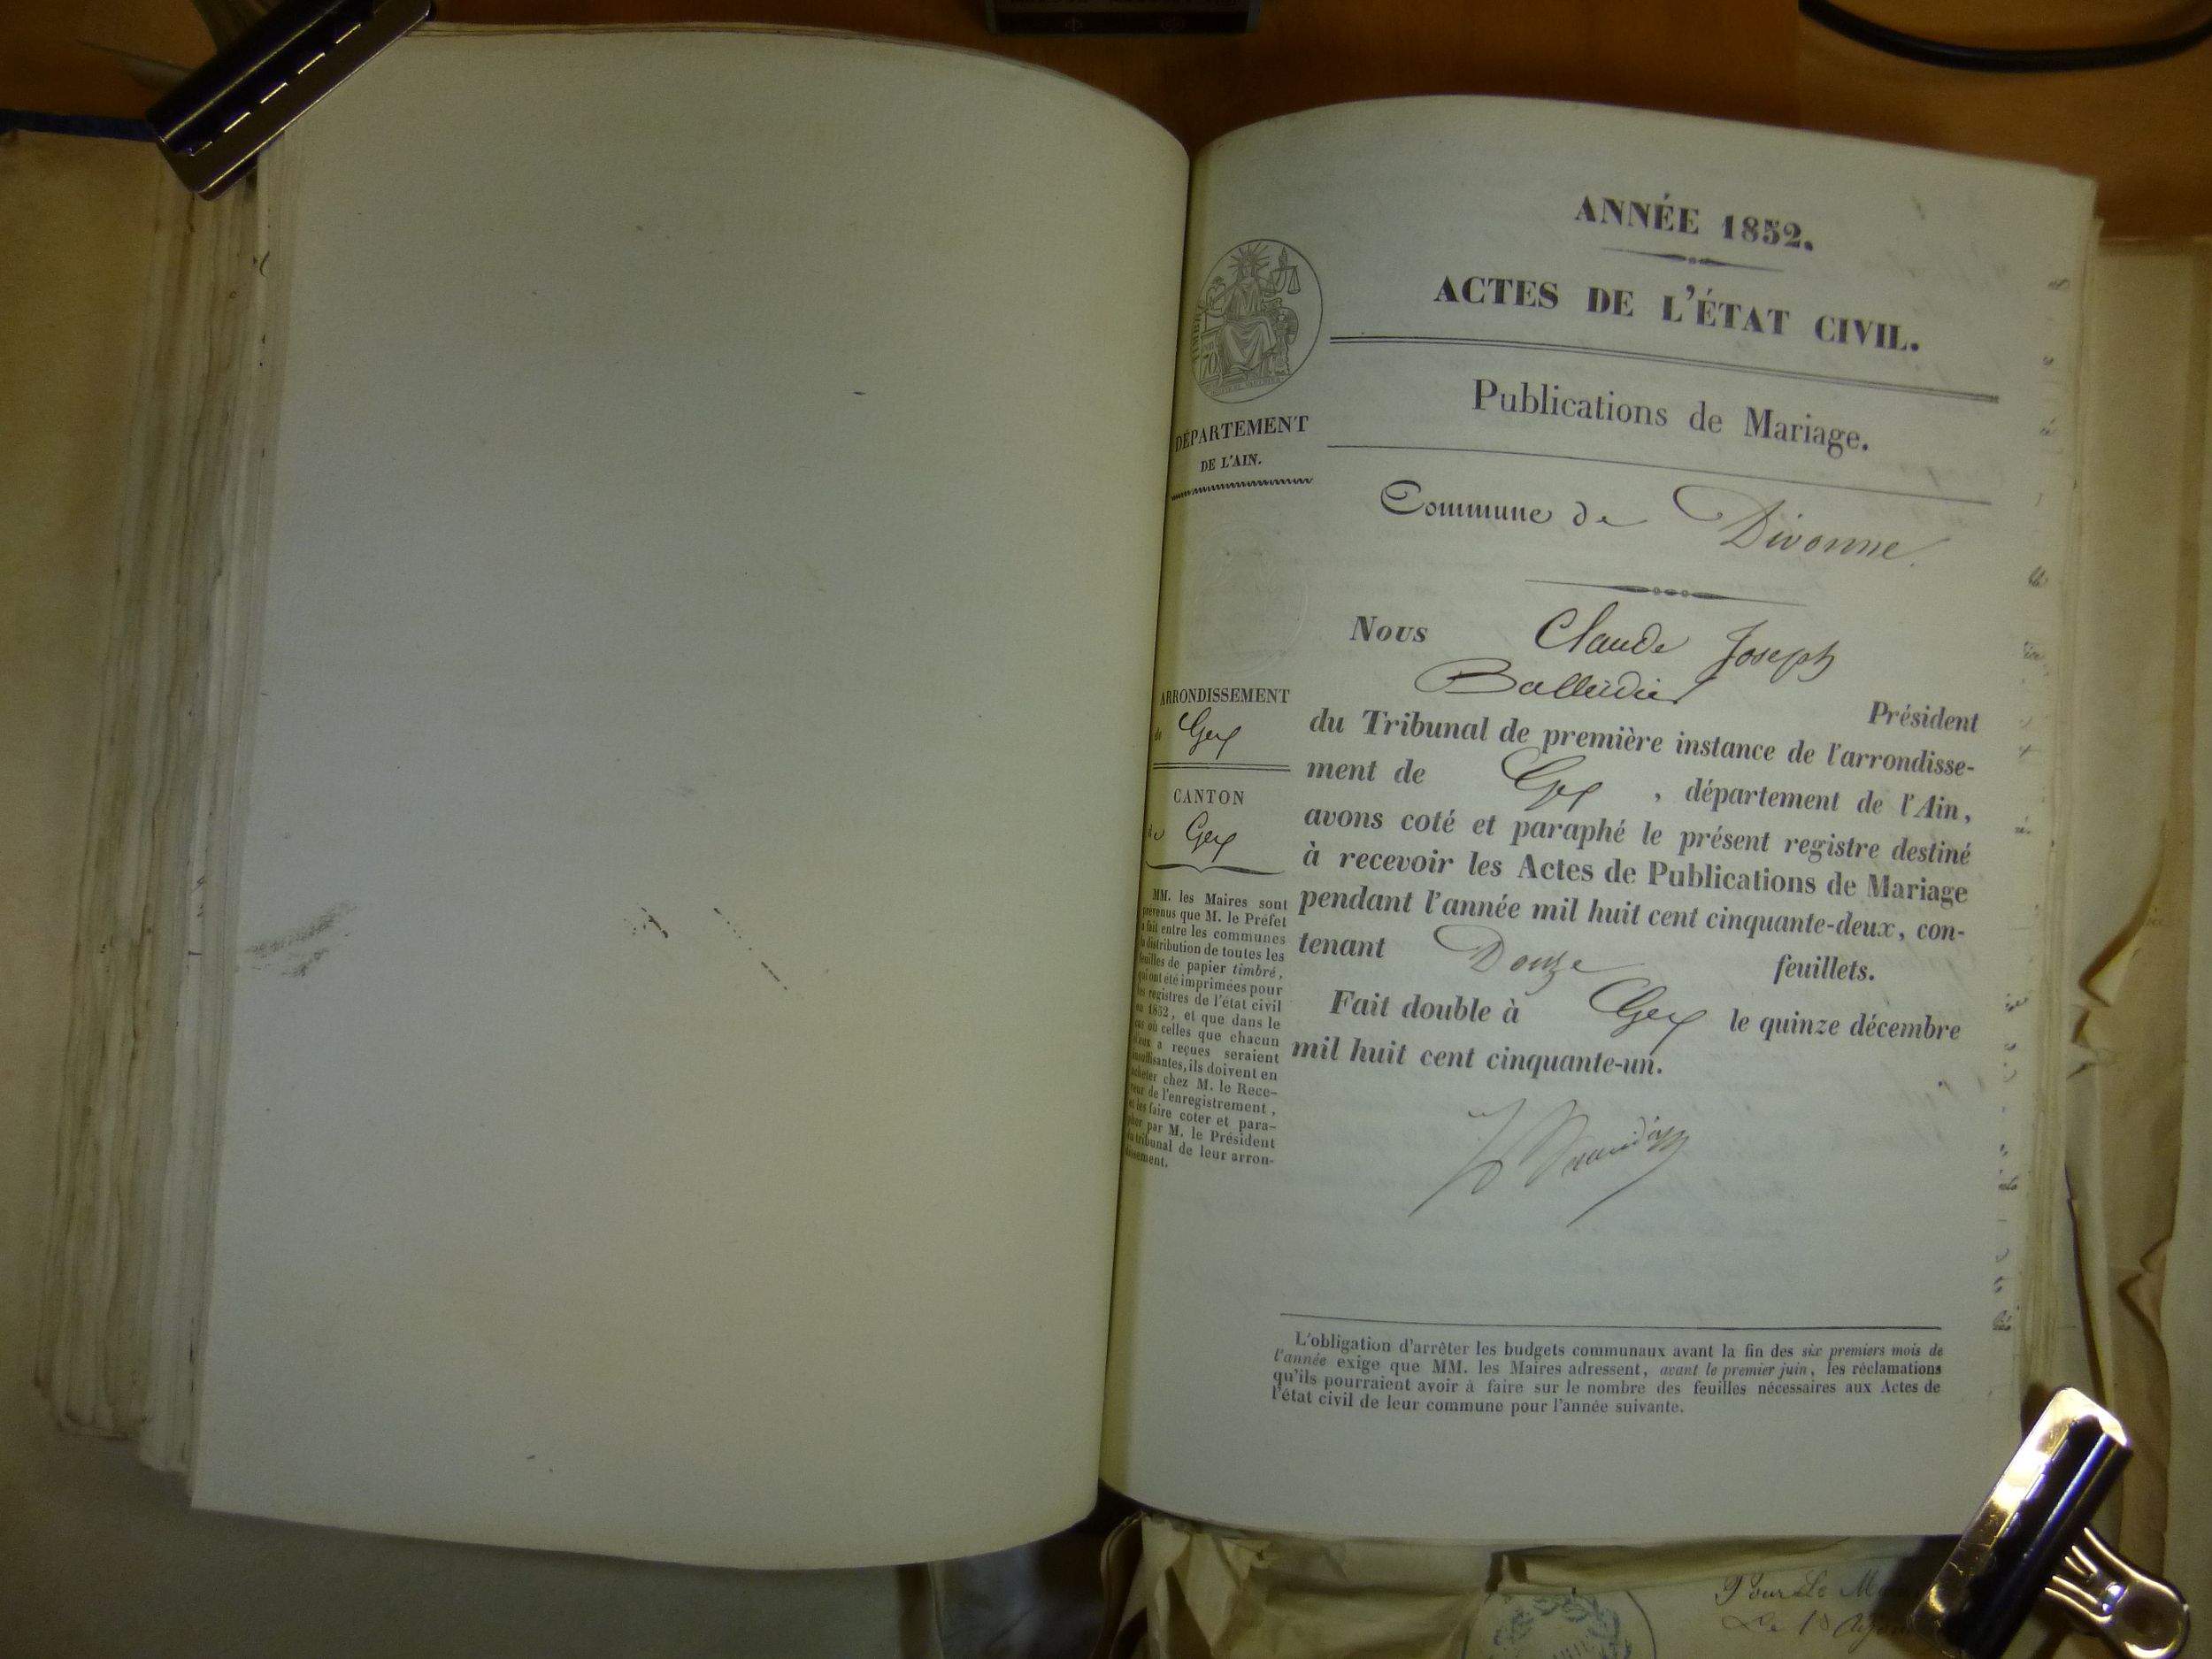 ANNÉE 1852.
ACTES DE L'ÉTAT CIVIL.
Publications de Mariage.
TIMBRE
70
DÉPARTEMENT
DE L'AIN.
Commune de Divonne.
Nous Claude Joseph
Balleidier
Président
du Tribunal de première instance de l'arrondisse-
ment de Gex, département de l'Ain,
avons coté et paraphé le présent registre destiné
à recevoir les Actes de Publications de Mariage
pendant l'année mil huit cent cinquante-deux, con-
tenant Douze feuillets.
Fait double à Gex le quinze décembre
mil huit cent cinquante-un.
ARRONDISSEMENT
de Gex
CANTON
de Gex
MM. les Maires sont
prévenus que M. le Préfet
a fait entre les communes
la distribution de toutes les
feuilles de papier timbré,
qui ont été imprimées pour
les registres de l'état civil
en 1852, et que dans le
cas où celles que chacun
d'eux a reçues seraient
insuffisantes, ils doivent en
acheter chez M. le Rece-
veur de l'enregistrement,
et les faire coter et para-
pher par M. le Président
du tribunal de leur arron-
dissement.
L'obligation d'arrêter les budgets communaux avant la fin des six premiers mois de
l'année exige que MM. les Maires adressent, avant le premier juin, les réclamations
qu'ils pourraient avoir à faire sur le nombre des feuilles nécessaires aux Actes de
l'état civil de leur commune pour l'année suivante.
Pour Le
Le